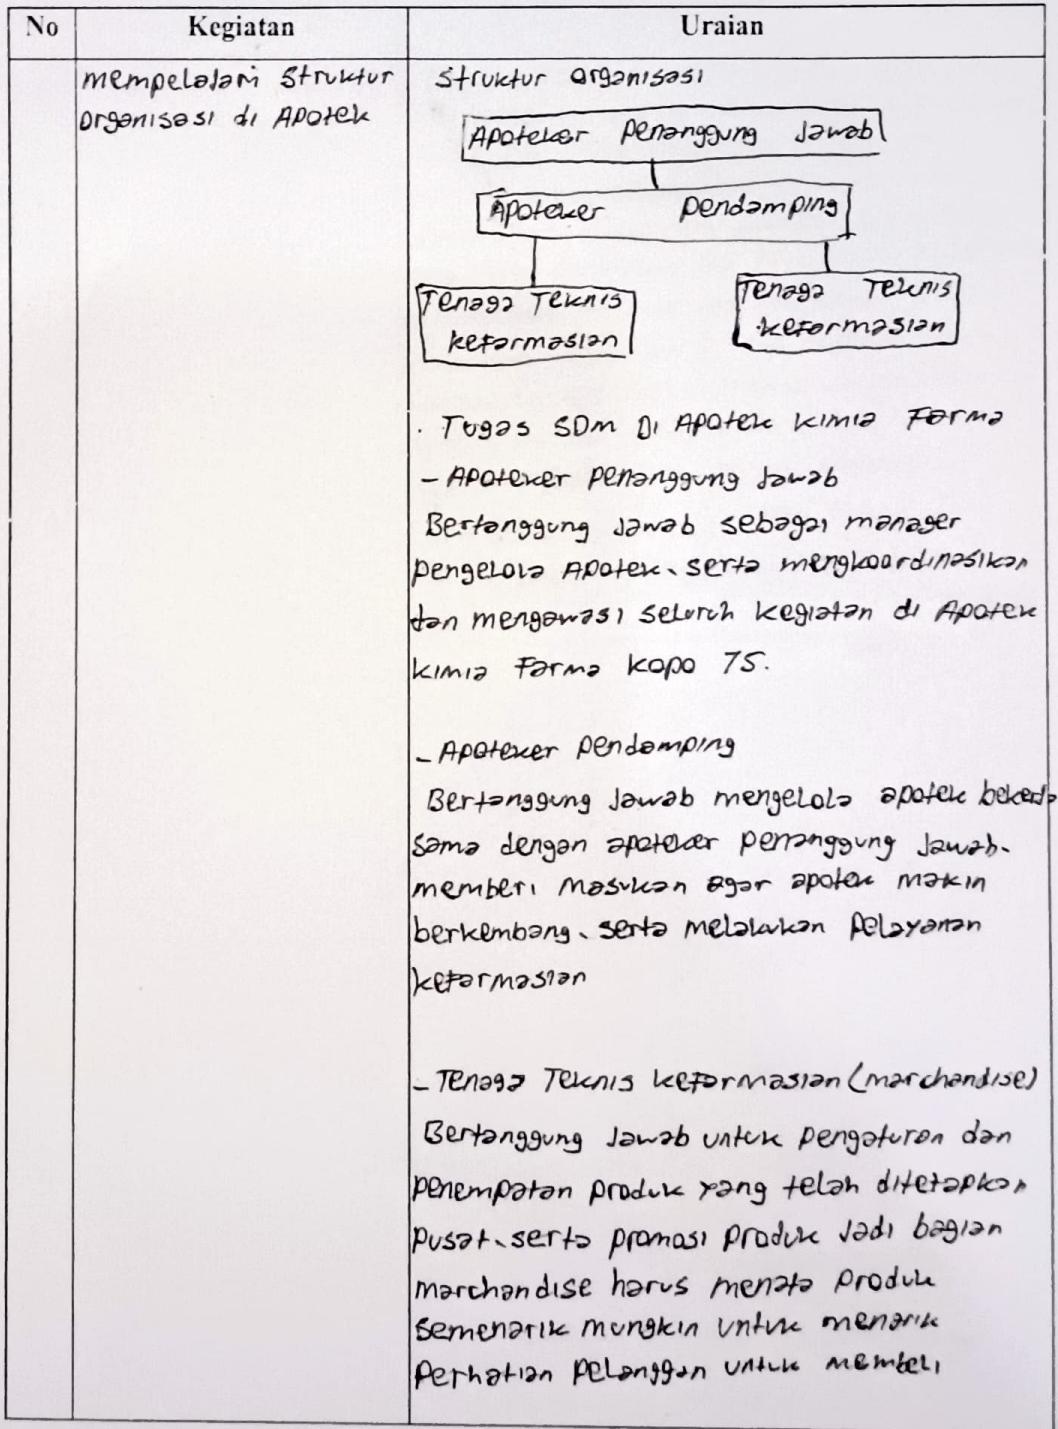 No Kegiatan Uraian
mempelajari Struktur
organisasi di Apotek
Struktur organisasi
Apoteker Penanggung Jawab
Apoteker Pendamping
Tenaga Teknis
kefarmasian
Tenaga Teknis
kefarmasian
. Tugas SDM Di Apotek Kimia Farma
- Apoteker Penanggung Jawab
Bertanggung Jawab sebagai manager
pengelola Apotek, serta mengkoordinasikan
dan mengawasi seluruh kegiatan di Apotek
Kimia Farma Kopo 75.
- Apoteker Pendamping
Bertanggung Jawab mengelola apotek bekerja
sama dengan apoteker penanggung Jawab.
memberi Masukan agar apotek makin
berkembang, serta melakukan Pelayanan
kefarmasian
- Tenaga Teknis kefarmasian (marchandise)
Bertanggung Jawab untuk pengaturan dan
penempatan produk yang telah ditetapkan
pusat, serta promosi produk Jadi bagian
marchandise harus menata produk
semenarik mungkin untuk menarik
Perhatian Pelanggan untuk membeli